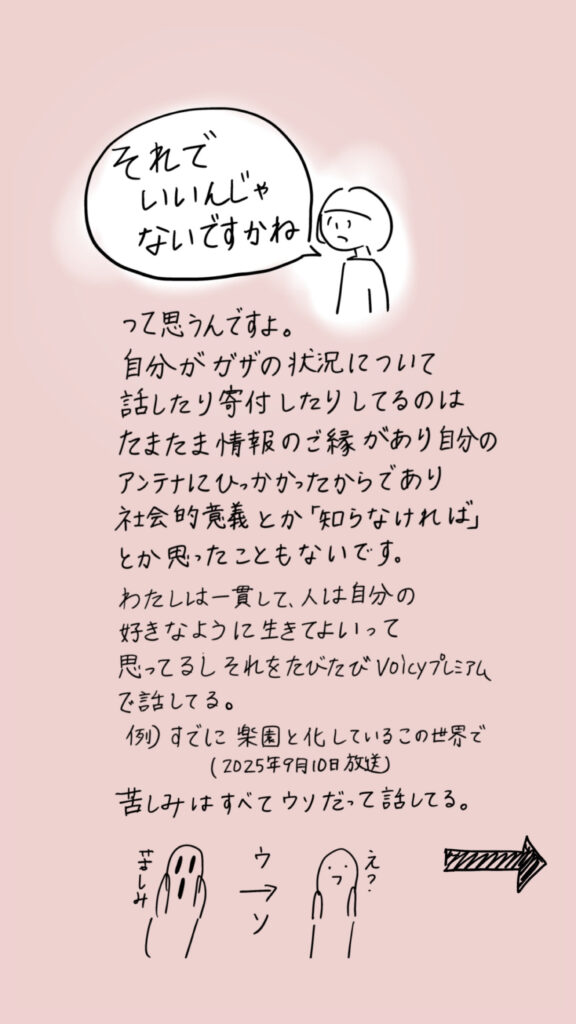 それで
いいんじゃ
ないですかね
って思うんですよ。
自分がガザの状況について
話したり寄付したりしてるのは
たまたま情報のご縁があり自分の
アンテナにひっかかったからであり
社会的意義とか「知らなければ」
とか思ったこともないです。
わたしは一貫して、人は自分の
好きなように生きてよいって
思ってるしそれをたびたびVoicyプレミアム
で話してる。
例)すでに楽園と化しているこの世界で
(2025年9月10日放送)
苦しみはすべてウソだって話してる。
苦しみ
ウソ
え?